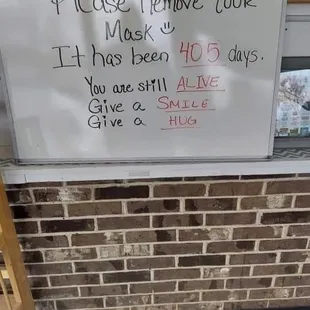 Please Remove Your
Mask
It has been 405 days.
You are still ALIVE
Give a SMILE
Give a HUG